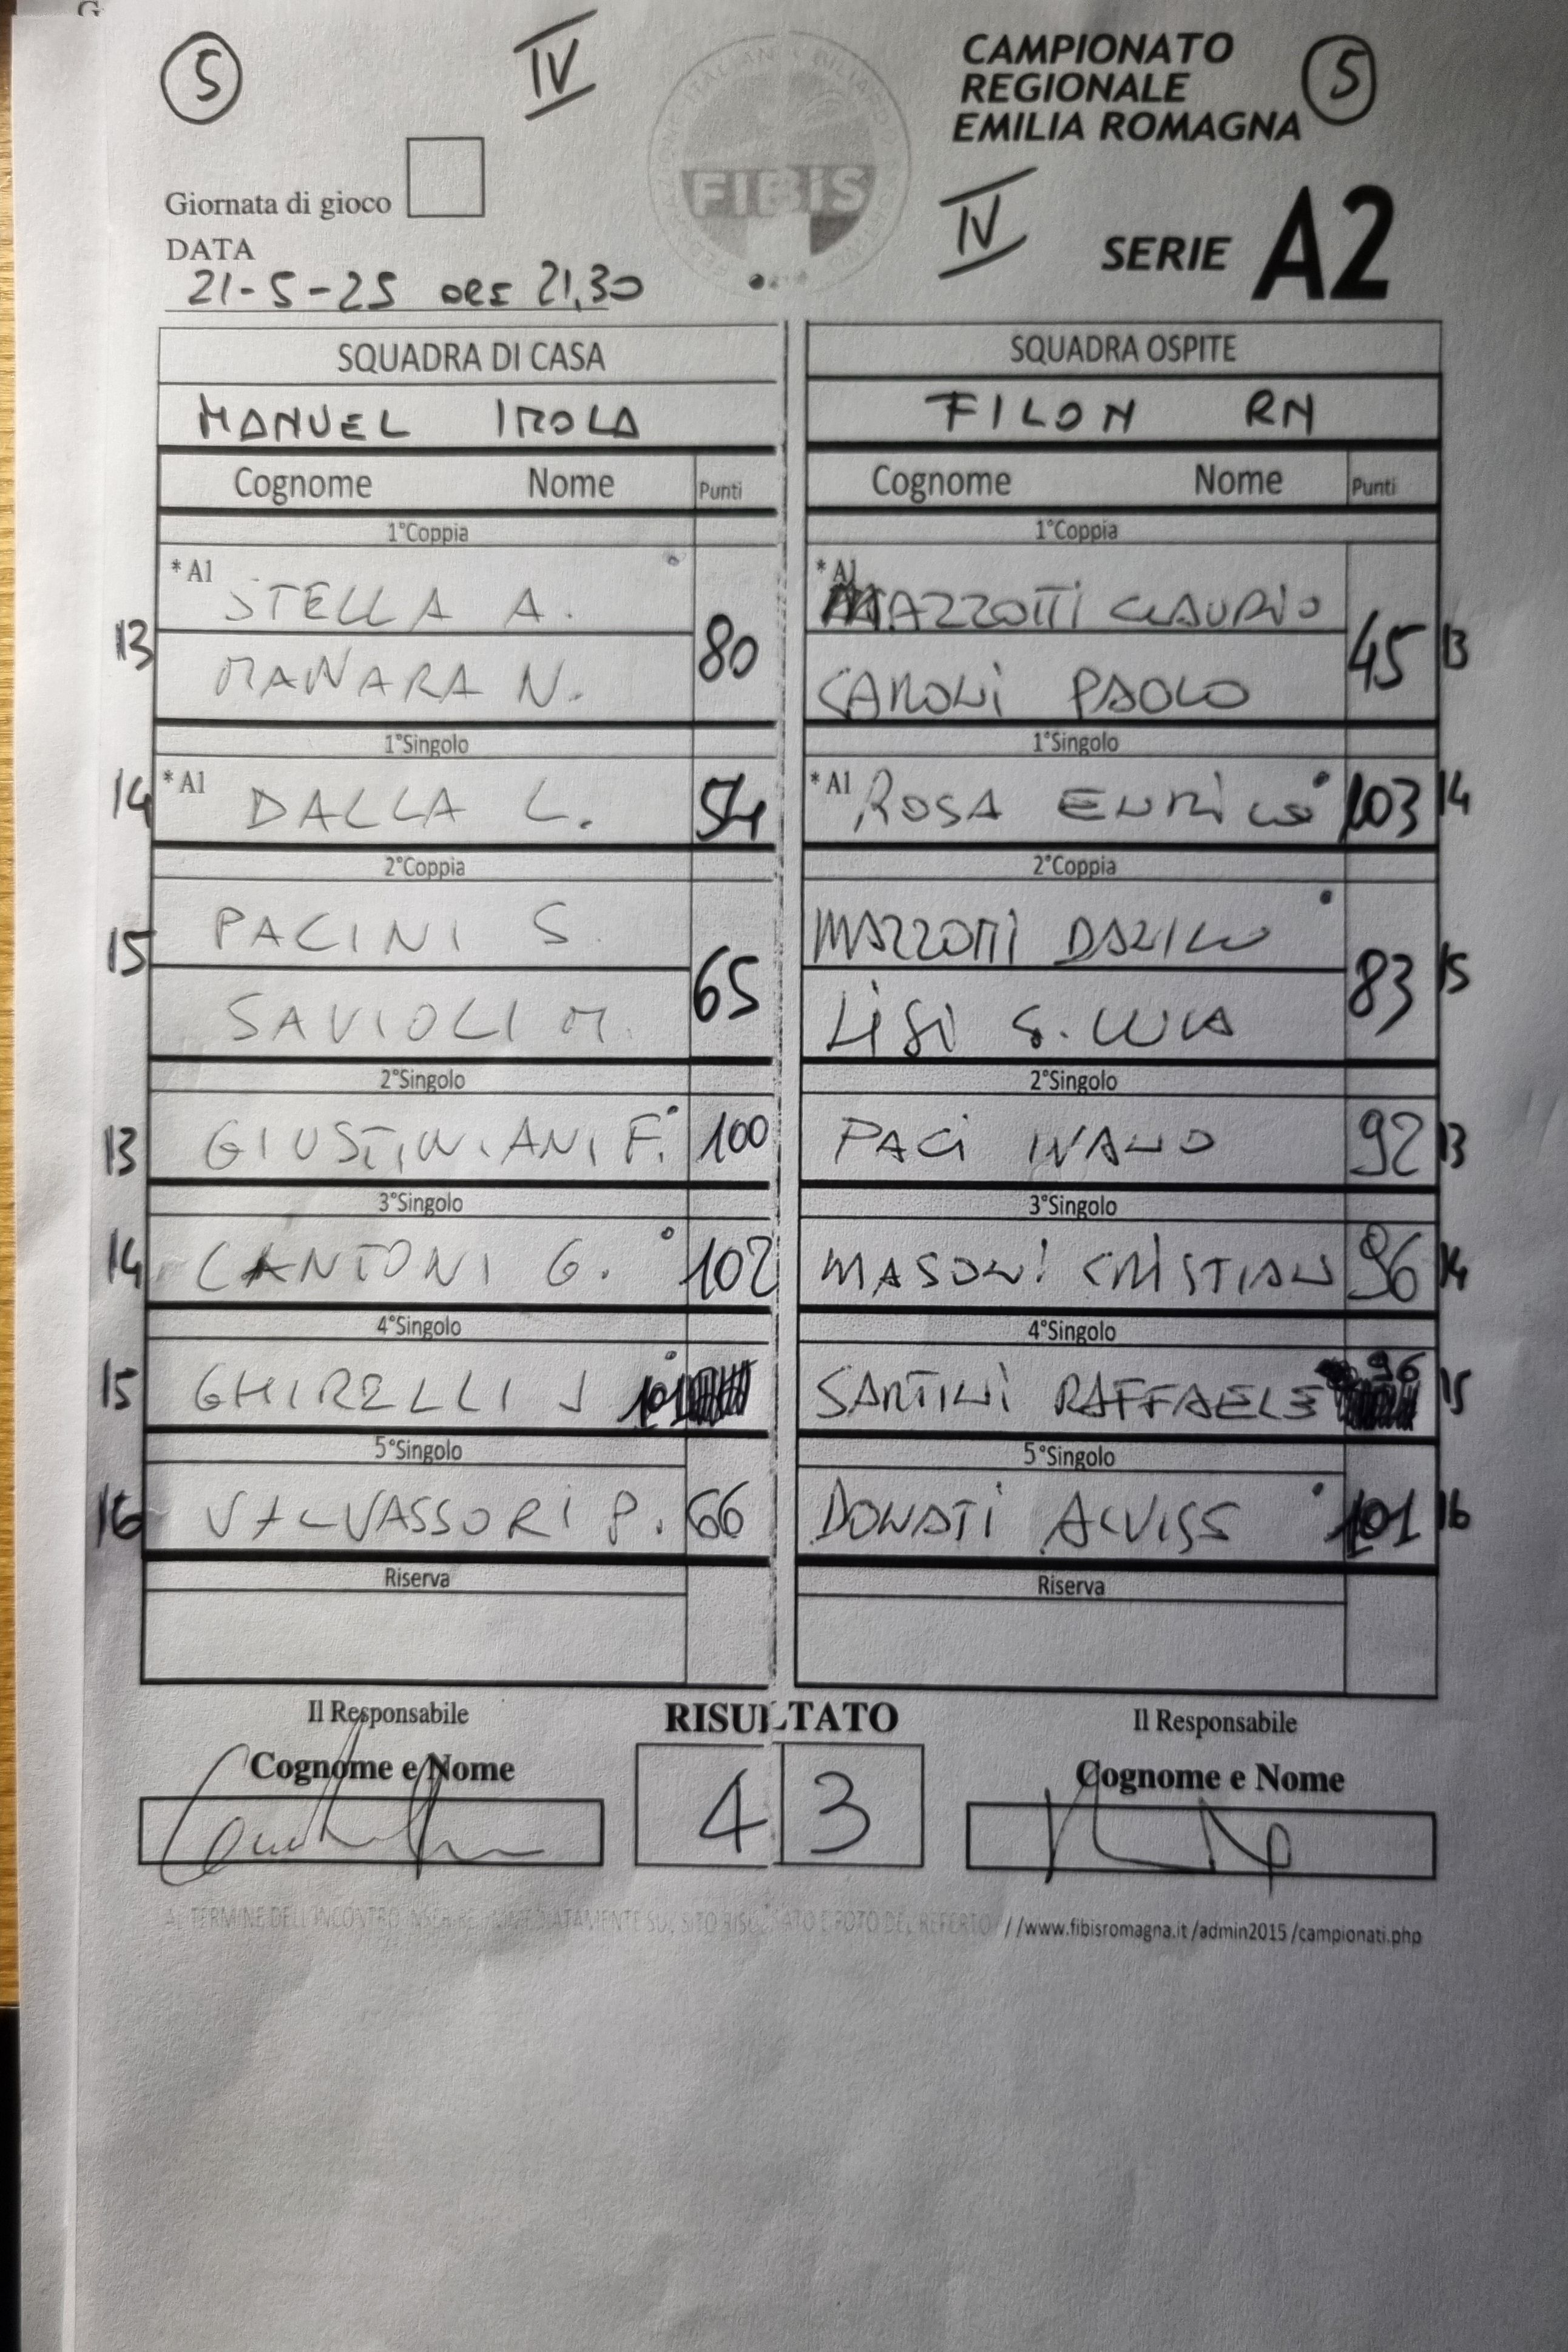 5
IV
CAMPIONATO
REGIONALE
EMILIA ROMAGNA
5
Giornata di gioco
FIBIS
IV
SERIE A2
DATA
21-5-25 ore 21,30
SQUADRA DI CASA
SQUADRA OSPITE
MANUEL IMOLA
FILON RN
Cognome Nome Punti
Cognome Nome Punti
1°Coppia
1°Coppia
*A1 STELLA A.
*A1 MAZZOTTI CLAUDIO
13 80
45 13
MANARA N.
CAROLI PAOLO
1°Singolo
1°Singolo
14 *A1 DALLA L. 54
*A1 ROSA ENRICO 103 14
2°Coppia
2°Coppia
PACINI S.
MAZZOTTI DANILO
15 65
83 15
SAVIOLI M.
LISI S. LUCA
2°Singolo
2°Singolo
13 GIUSTINIANI F. 100
PACI IVANO 92 13
3°Singolo
3°Singolo
14 CANTONI G. 102
MASONI CRISTIAN 96 14
4°Singolo
4°Singolo
15 GHIRELLI J 101
SARTINI RAFFAELE 96 15
5°Singolo
5°Singolo
16 VALVASSORI P. 66
DONATI ALVISE 101 16
Riserva
Riserva
Il Responsabile
RISULTATO
Il Responsabile
Cognome e Nome
4 3
Cognome e Nome
AL TERMINE DELL'INCONTRO INSERIRE IMMEDIATAMENTE SUL SITO RISULTATO E FOTO DEL REFERTO //www.fibisromagna.it/admin2015/campionati.php